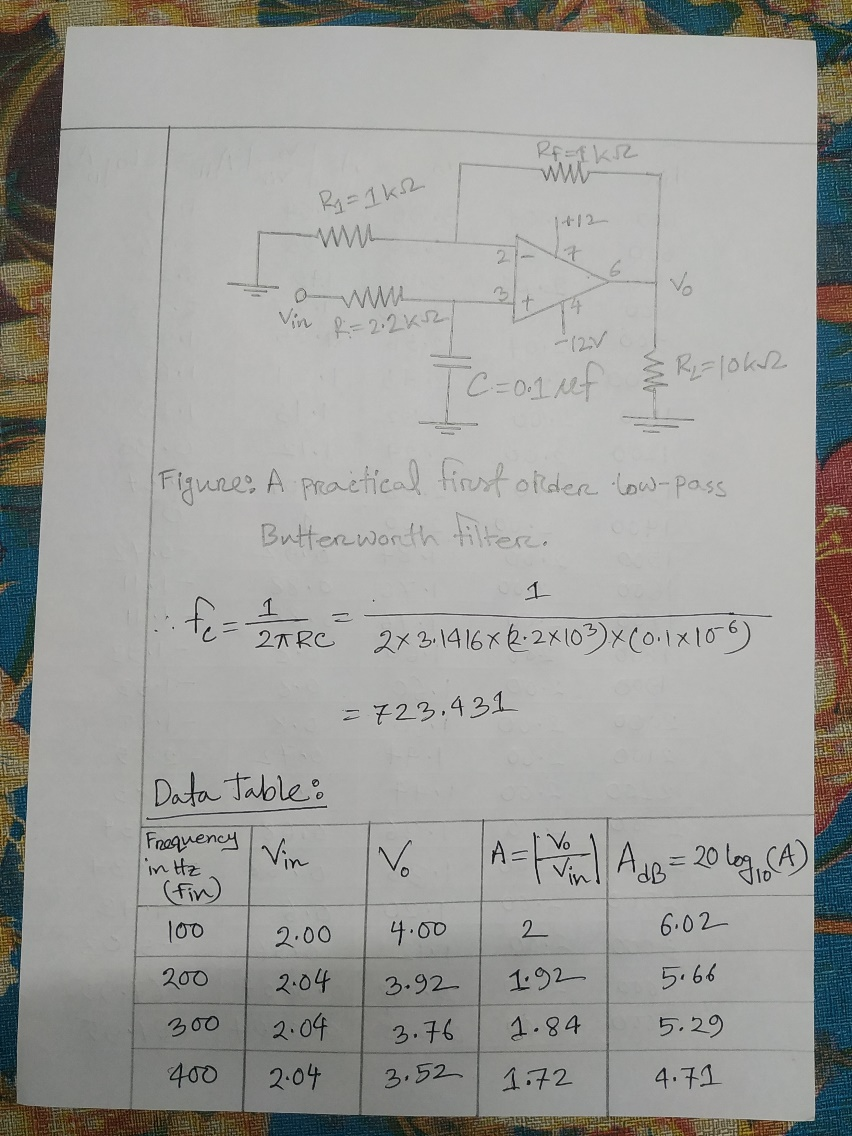 RF=1kΩ
R1=1kΩ
+12
2 - 7
6
3 + 4
Vo
Vin R=2.2kΩ
-12V
RL=10kΩ
C=0.1μf
Figure: A practical first order low-pass
Butterworth filter.
∴ fc = 1/2πRC = 1/2×3.1416×(2.2×10³)×(0.1×10⁻⁶)
= 723.431
Data Table:
Frequency in Hz (fin) Vin Vo A=|Vo/Vin| AdB = 20 log10(A)
100 2.00 4.00 2 6.02
200 2.04 3.92 1.92 5.66
300 2.04 3.76 1.84 5.29
400 2.04 3.52 1.72 4.71